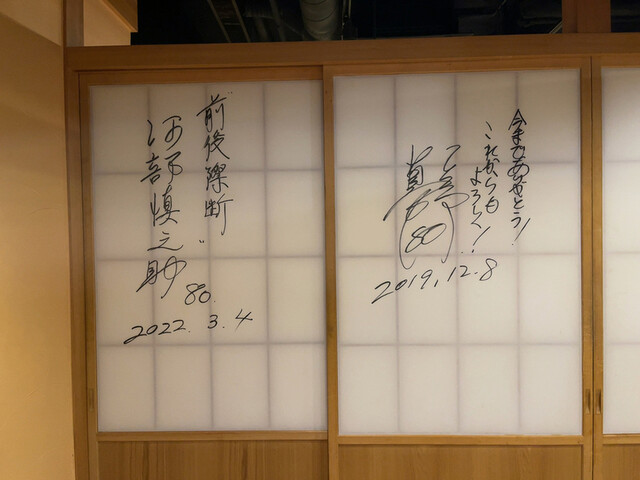 今まであ りがとう!
これからも
よろしく!!
(80)
2019.12.8
前後際断
阿部慎之助
80.
2022. 3. 4